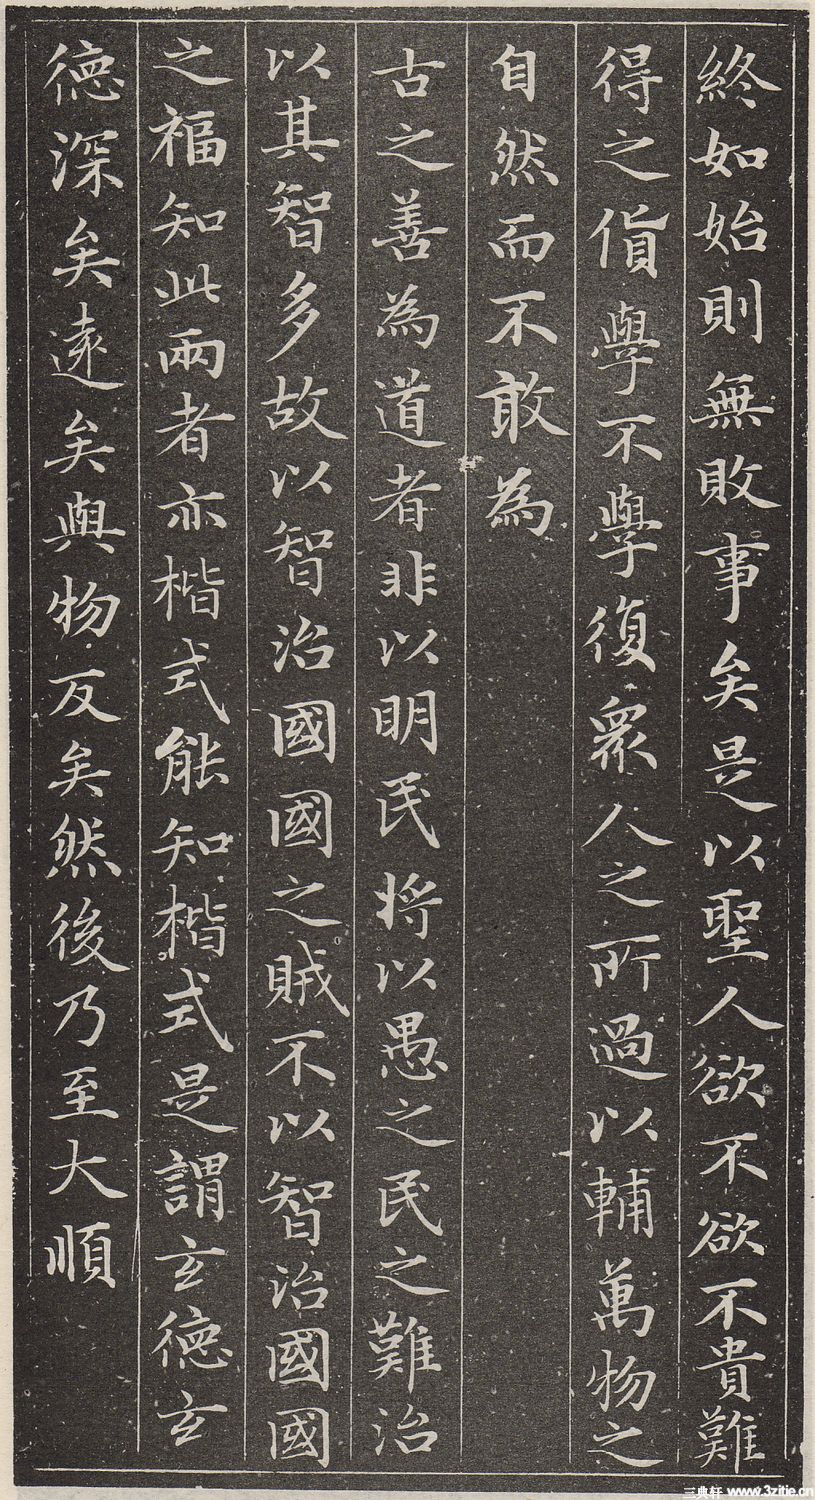 終如始則無敗事矣是以聖人欲不欲不貴難
得之貨學不學復眾人之所過以輔萬物之
自然而不敢為
古之善為道者非以明民將以愚之民之難治
以其智多故以智治國國之賊不以智治國國
之福知此兩者亦楷式能知楷式是謂玄德玄
德深矣遠矣與物反矣然後乃至大順
三典轩 www.3zitie.cn